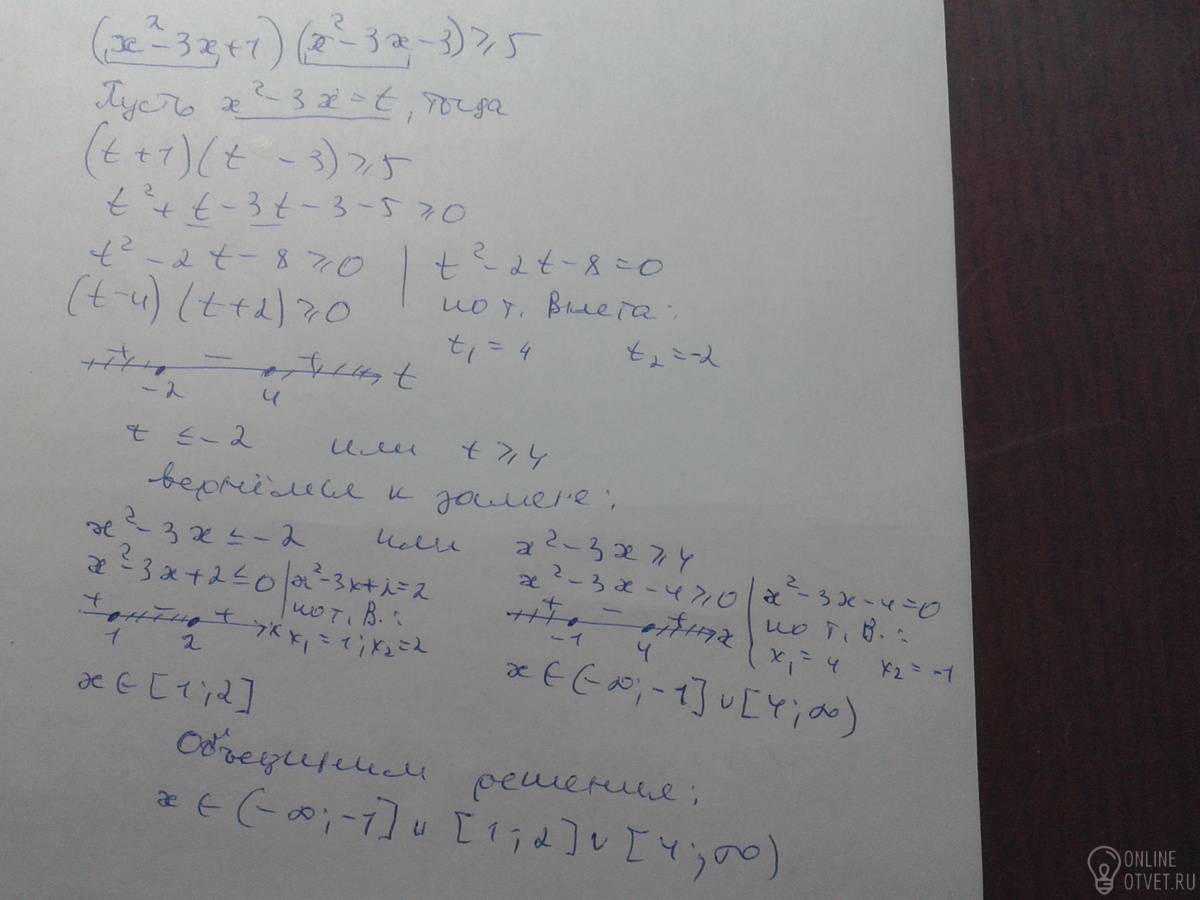 (x²-3x+1)(x²-3x-3)⩾5
Пусть x²-3x=t, тогда
(t+1)(t-3)⩾5
t²+t-3t-3-5⩾0
t²-2t-8⩾0 | t²-2t-8=0
(t-4)(t+2)⩾0 | по т. Виета:
t₁=4 t₂=-2
+ - + t
-2 4
t≤-2 или t⩾4
вернёмся к замене:
x²-3x≤-2 или x²-3x⩾4
x²-3x+2≤0 | x²-3x+2=2
по т. В.:
+ - + x x₁=1; x₂=2
1 2
x²-3x-4⩾0 | x²-3x-4=0
по т. В.:
+ - + x x₁=4 x₂=-1
-1 4
x∈[1;2]
x∈(-∞;-1]∪[4;∞)
Объединим решения:
x∈(-∞;-1]∪[1;2]∪[4;∞)
ONLINE
OTVET.RU